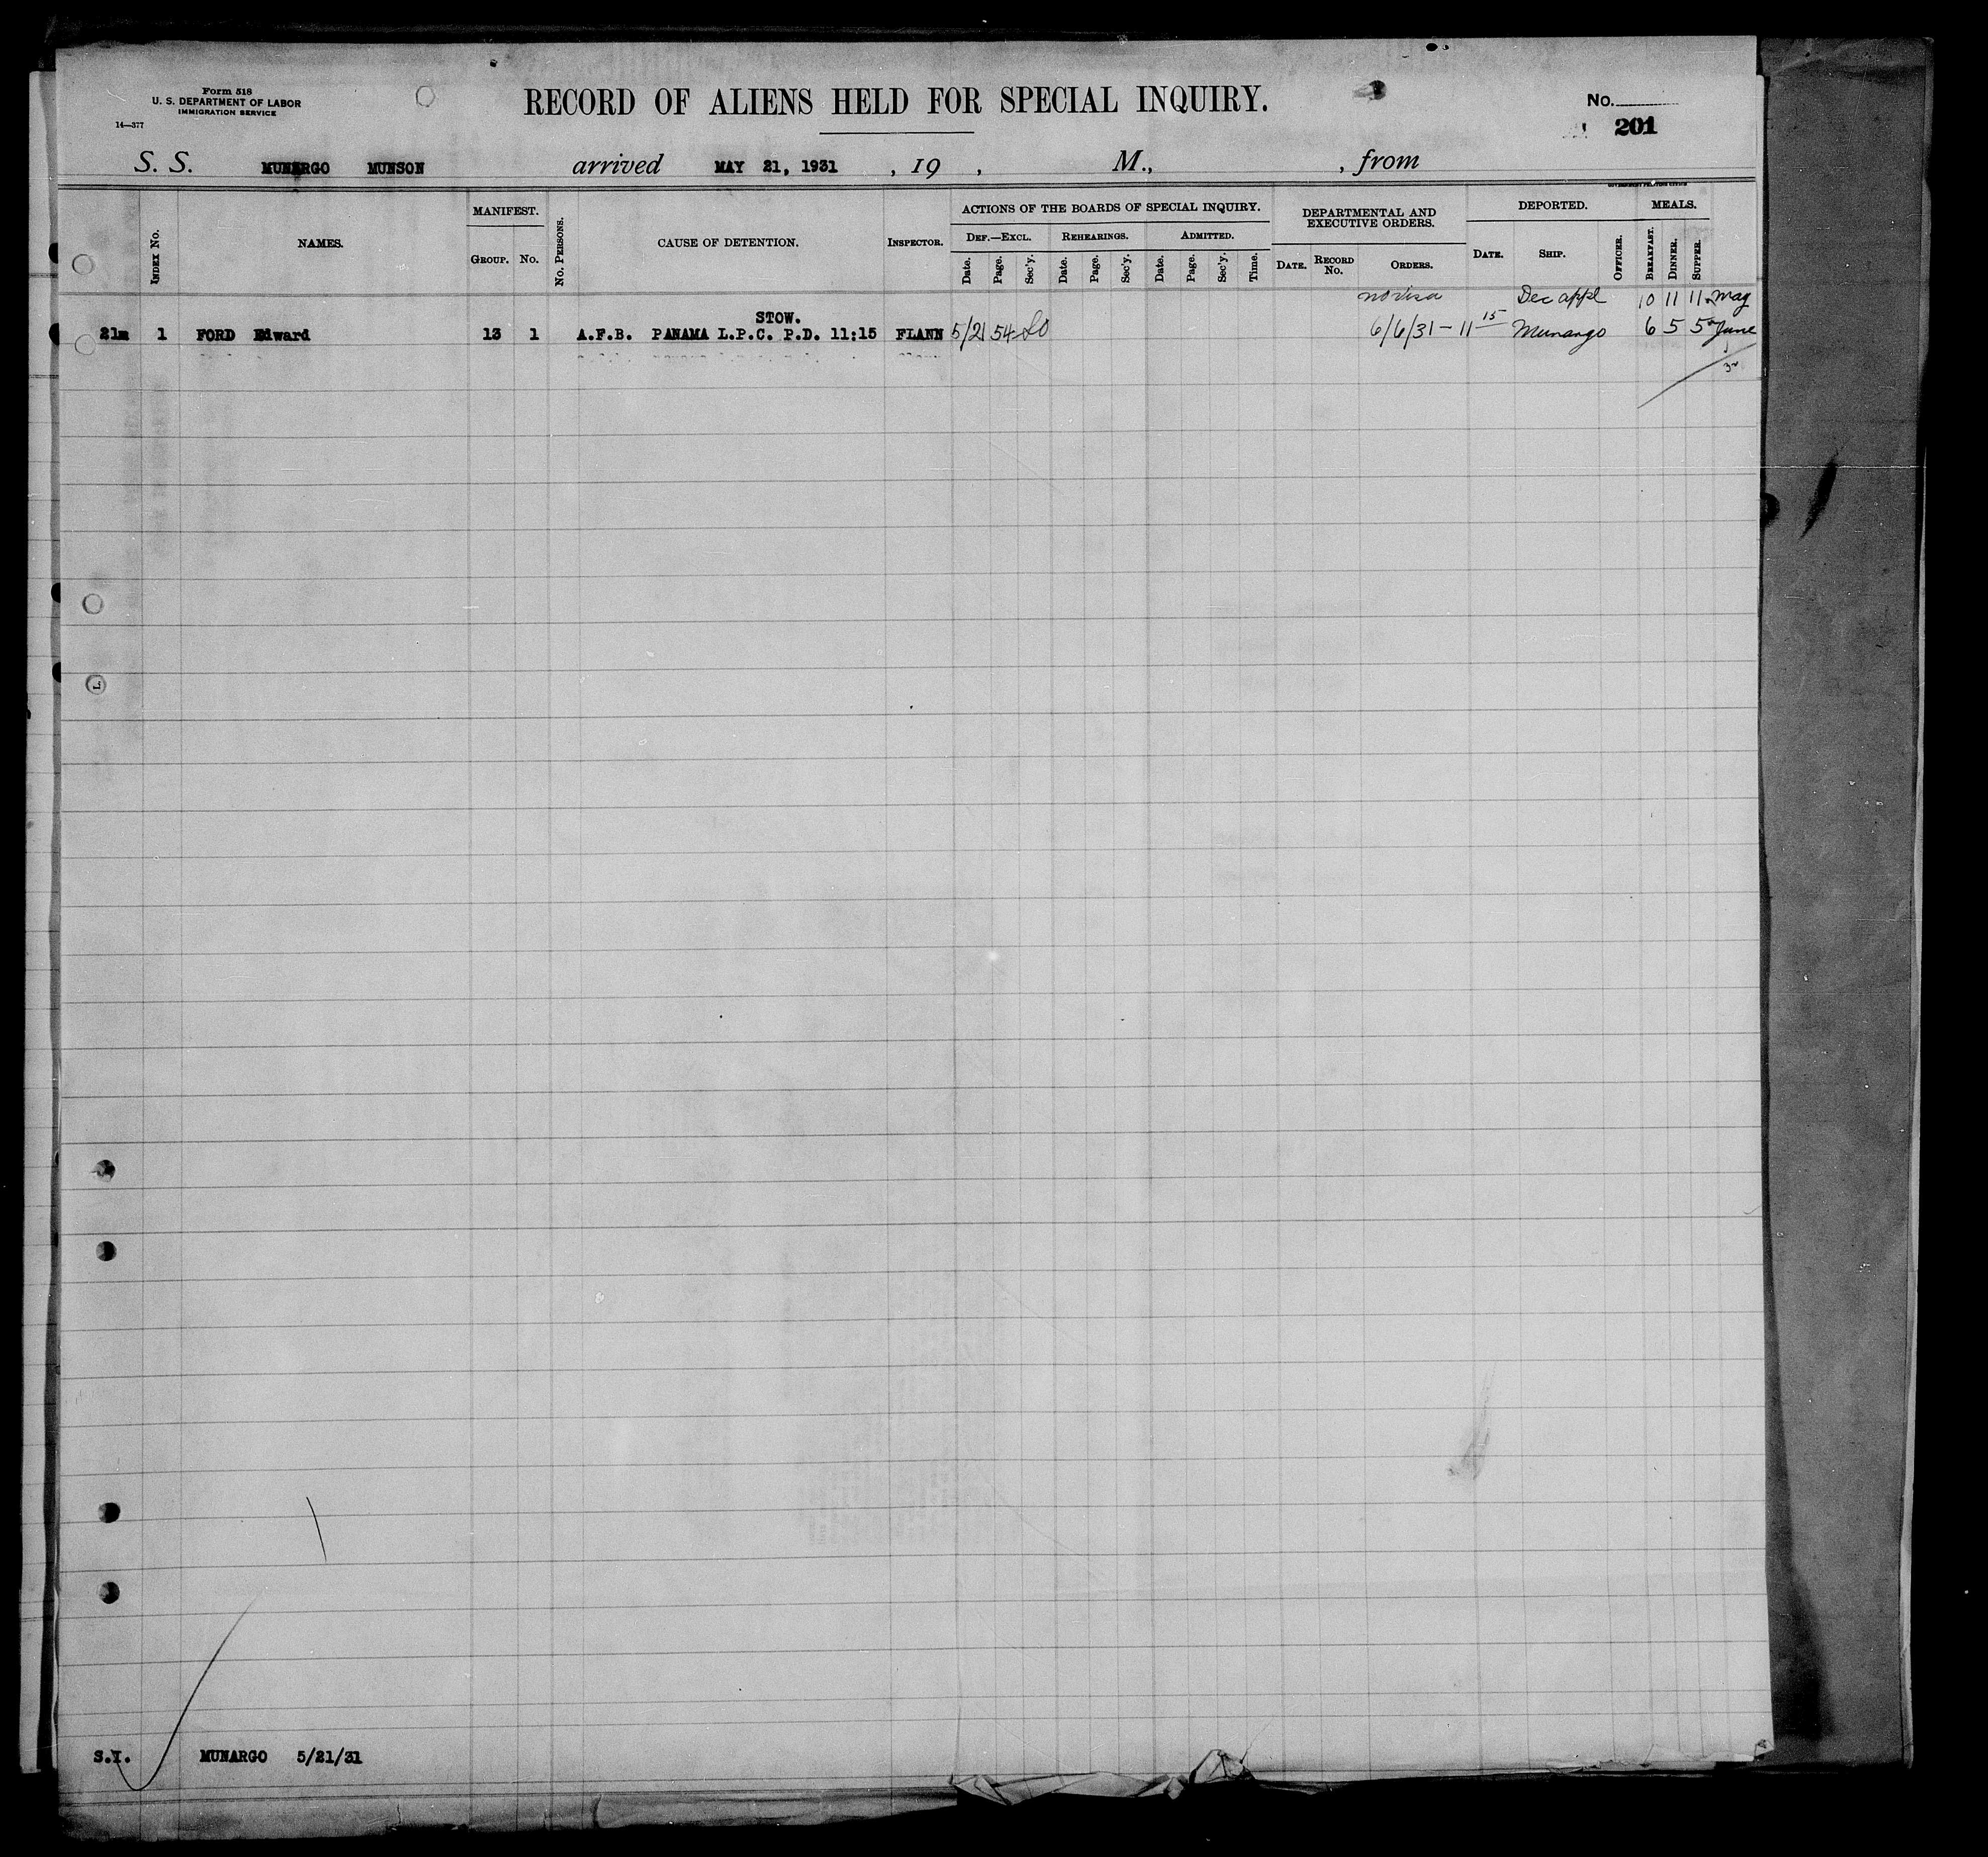 Form 518
U. S. DEPARTMENT OF LABOR
IMMIGRATION SERVICE
14—377
RECORD OF ALIENS HELD FOR SPECIAL INQUIRY.
No.
201
S. S. MUNARGO MUNSON arrived MAY 21, 1931 , 19 , M., , from
GOVERNMENT PRINTING OFFICE
INDEX No. NAMES. MANIFEST. GROUP. No. No. PERSONS. CAUSE OF DETENTION. INSPECTOR.
ACTIONS OF THE BOARDS OF SPECIAL INQUIRY.
DEF.—EXCL. REHEARINGS. ADMITTED.
Date. Page. Sec'y. Date. Page. Sec'y. Date. Page. Sec'y. Time.
DEPARTMENTAL AND EXECUTIVE ORDERS.
DATE. RECORD No. ORDERS.
DEPORTED.
DATE. SHIP. OFFICER.
MEALS.
BREAKFAST. DINNER. SUPPER.
no visa Dec appl 10 11 11 May
STOW.
21m 1 FORD Edward 13 1 A.F.B. PANAMA L.P.C. P.D. 11:15 FLANN 5/21 54 6/6/31 - 11 15 Munargo 6 5 5 June
S.I. MUNARGO 5/21/31